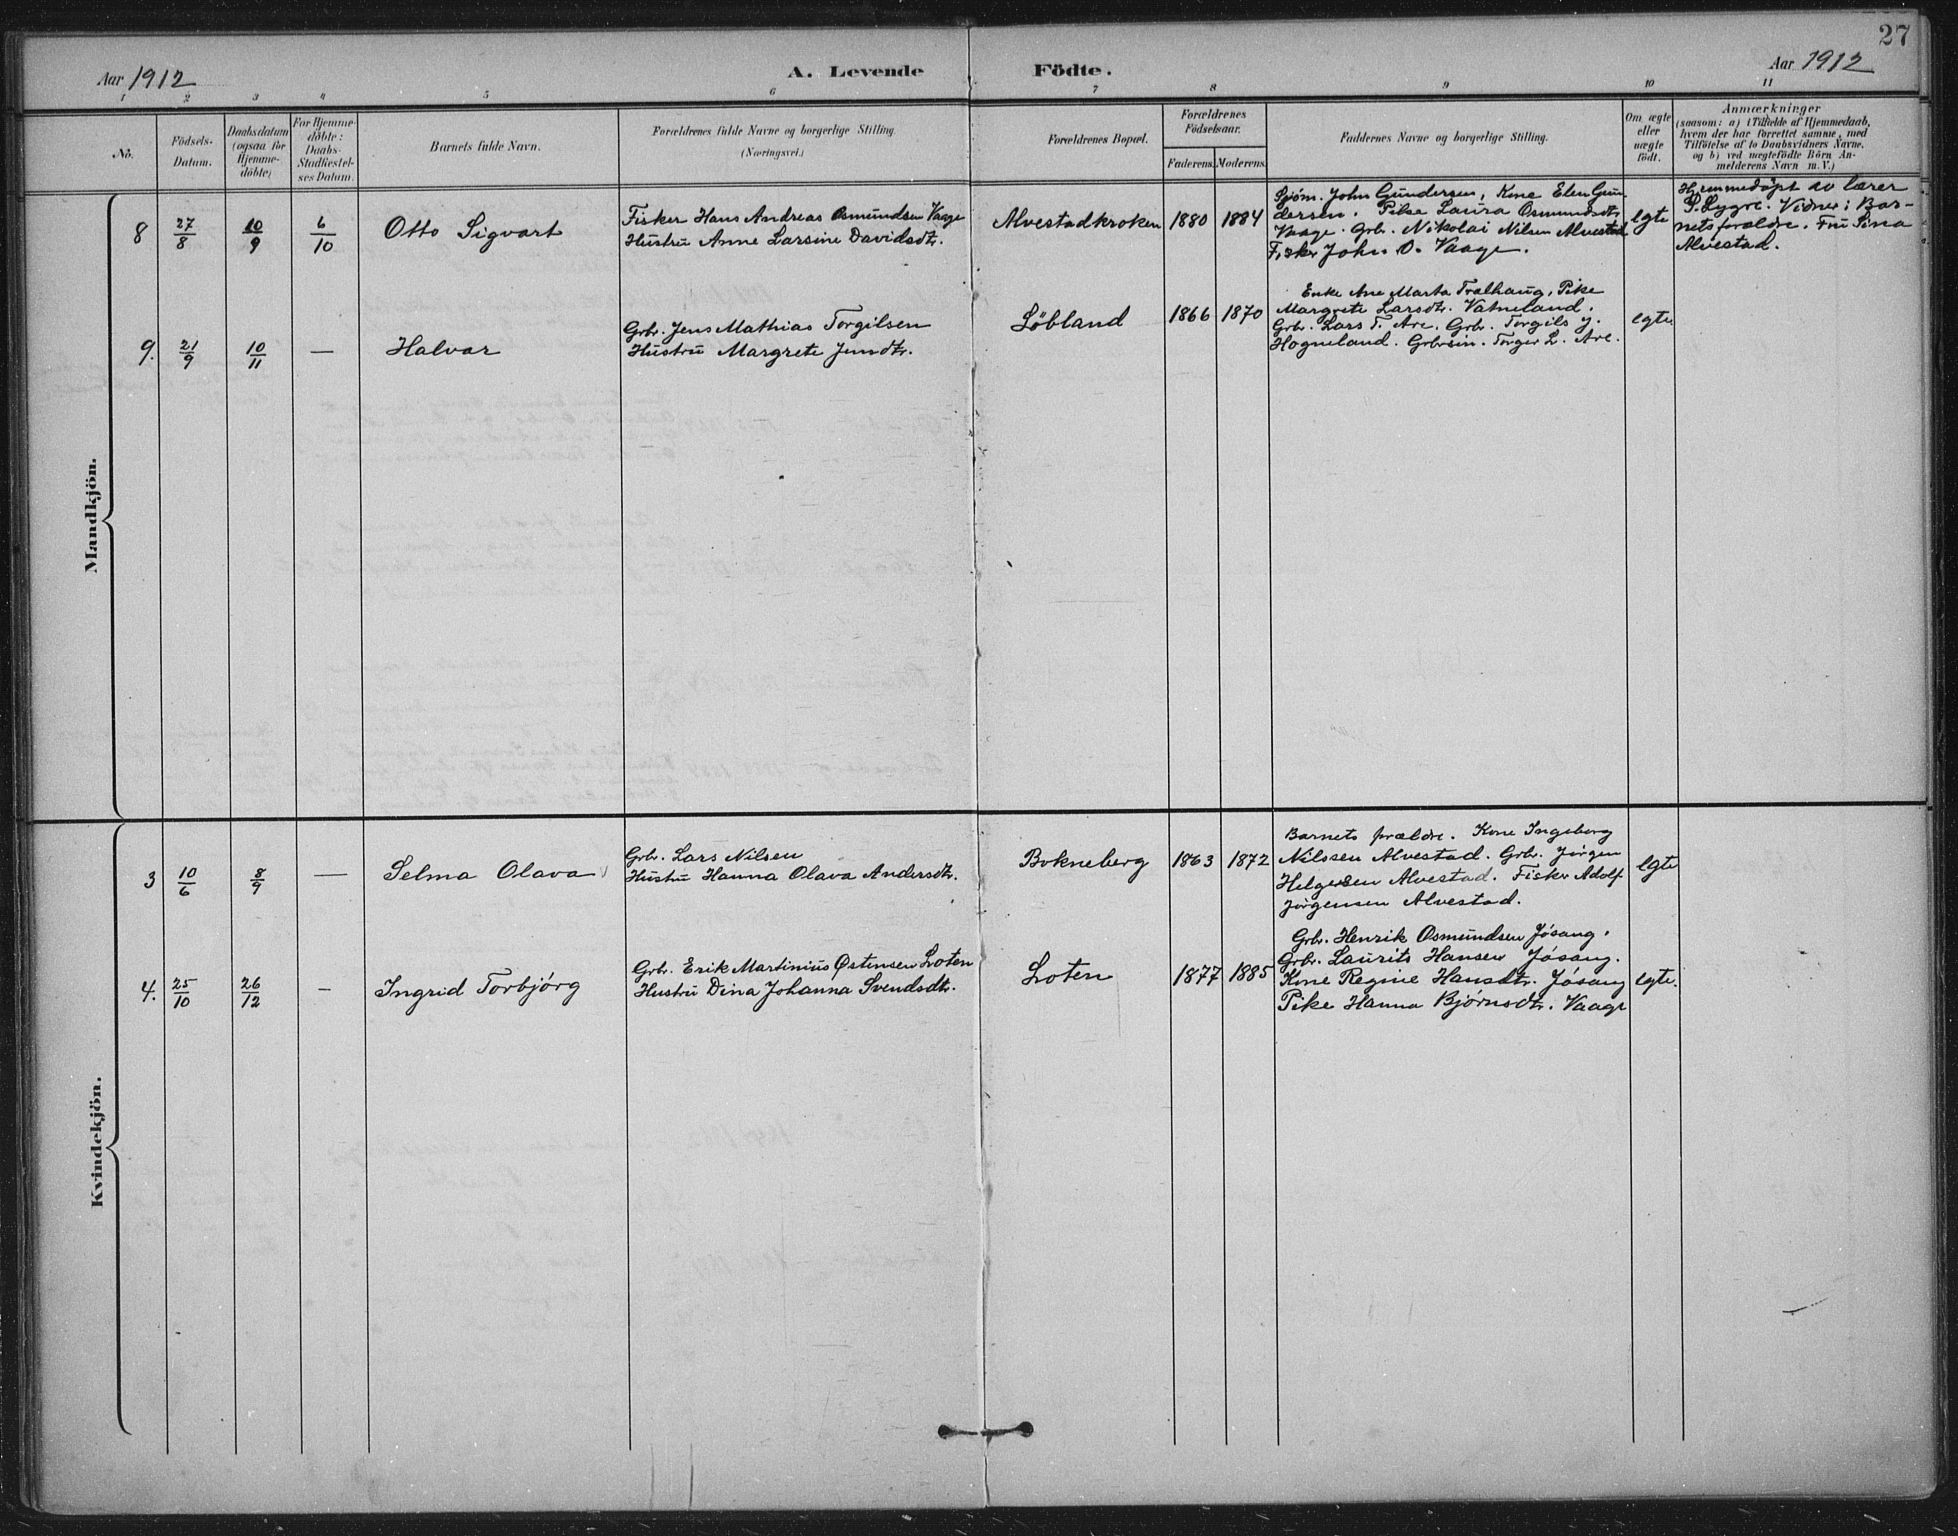 27
Aar 1912
A. Levende Födte.
Aar 1912
1 2 3 4 5 6 7 8 9 10 11
No.
Födsels-
Datum.
Daabsdatum
(ogsaa for
Hjemme-
döbte)
For Hjemme-
döbte:
Daabs-
Stadfæstel-
ses Datum.
Barnets fulde Navn.
Forældrenes fulde Navne og borgerlige Stilling.
(Næringsvei.)
Forældrenes Bopæl.
Forældrenes
Födselsaar.
Faderens. Moderens.
Faddernes Navne og borgerlige Stilling.
Om ægte
eller
uægte
födt.
Anmærkninger
(saasom: a) i Tilfælde af Hjemmedaab,
hvem der har forrettet samme, med
Tilföielse af to Daabsvidners Navne,
og b) ved uægtefödte Börn An-
melderens Navn m. V.)
Mandkjön.
8 27/8 10/9 6/10 Otto Sigvart
Fisker Hans Andreas Osmundsen Vaage
Hustru Anne Larsine Davidsdtr.
Alvestadkroken 1880 1884
Sjöm. John Gundersen, Kone Elen Gun-
dersen. Pike Laura Osmundsdtr.
Vaage. Grb. Nikolai Nilsen Alvestad
Fisker John O. Vaage.
egte
Hjemmedöpt av lærer
P. Lygre. Vidner: Bar-
nets forældre. Fru Sina
Alvestad.
9. 21/9 10/11 — Halvar
Grb. Jens Mathias Torgilsen
Hustru Margrete Jensdtr.
Löbland 1866 1870
Enke Ane Marta Tralhaug, Pike
Margrete Larsdtr. Vatneland.
Grb. Lars T. Are. Grb. Torgils J.
Hogneland. Grbrsön. Torger L. Are.
egte.
Kvindekjön.
3 10/6 8/9 — Selma Olava
Grb. Lars Nilsen
Hustru Hanna Olava Andersdtr.
Bokneberg 1863 1872
Barnets forældre. Kone Ingeborg
Nilssen Alvestad. Grb. Jörgen
Helgesen Alvestad. Fisker Adolf
Jörgensen Alvestad.
egte
4. 25/10 26/12 — Ingrid Torbjörg
Grb. Erik Martinius Østensen Loten
Hustru Dina Johanna Svendsdtr.
Loten 1877 1885
Grb. Henrik Osmundsen Jösang,
Grb. Laurits Hansen Jösang.
Kone Regine Hansdtr. Jösang
Pike Hanna Bjørnsdtr. Vaage
egte.